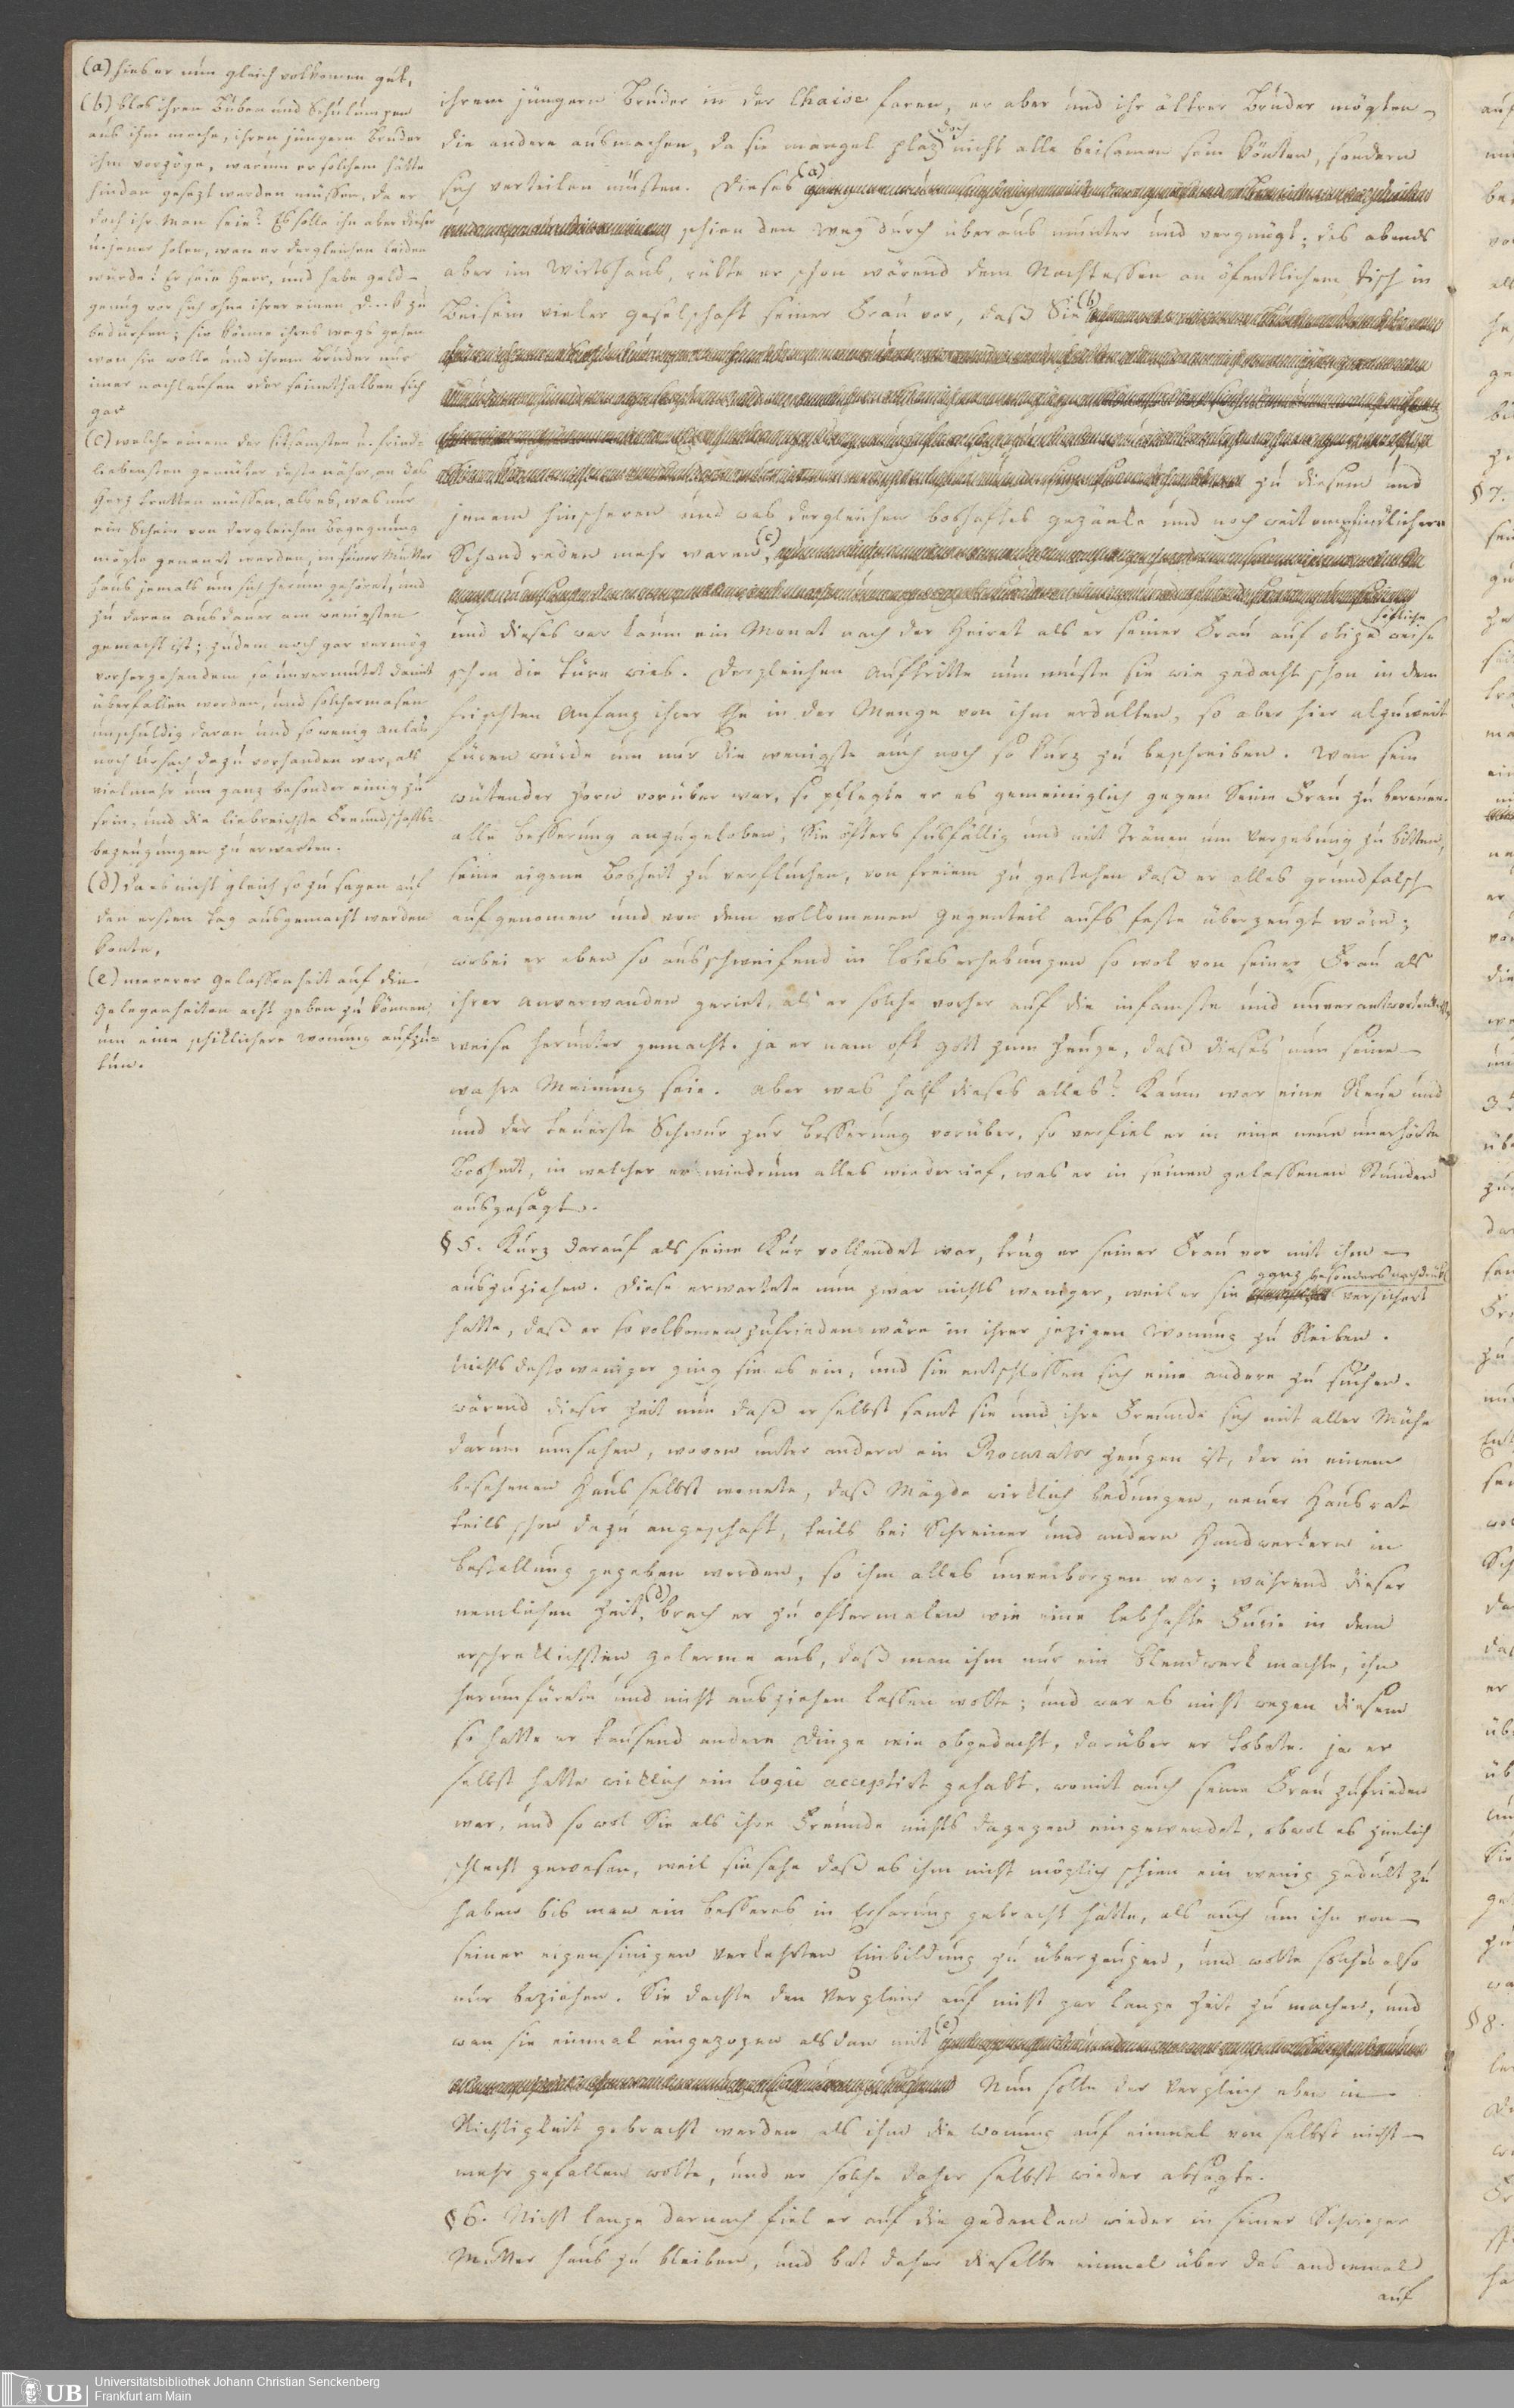 (a) hies er nun gleich volkomen gut,
(b) blos ihren Buben und Schulumpen
aus ihm mache, ihren jüngern Bruder
ihm vorzöge, warum er solchem hätte
hindan gesezt werden müssen, da er
doch ihr Man sein? Es solle ihn aber dieser
u. jener holen, wan er dergleichen leiden
würde! Er sein Herr, und habe geld
genug vor sich ohne ihrer einen D...k zu
bedürfen; sie könne ihres wegs gehen
wan sie wolle und ihrem Bruder nur
imer nachlaufen oder seinethalben sich
gar
(c) welche einem der sitsamsten u. fried-
liebensten gemüter desto näher an das
Herz tretten müssen, als es, was nur
ein Schein von dergleichen Begegnung
mögte genent werden, in seiner Mutter
haus jemals um sich herum gehöret, und
zu deren ausdauer am wenigsten
gemacht ist; zudem noch gar vermög
vorhergehendem so unvermutet damit
überfallen worden, und solchermasen
unschuldig daran und so wenig anlas
noch Ursach dazu vorhanden war, als
vielmehr um ganz besonder einig zu
sein, und die liebreichste Freundschafts-
bezeugungen zu erwarten.
(d) da es nicht gleich so zu sagen auf
den ersten tag ausgemacht werden
konte,
(e) mererer gelassenheit auf die
gelegenheiten acht geben zu können,
um eine schiklichere wonung aufzu-
tun.
ihrem jüngern Bruder in der Chaise faren, er aber und ihr ältrer Bruder mögten
die andere ausmachen, da sie mangel plaz doch nicht alle beisamen sein könten, sondern
sich verteilen müsten. Dieses (a)
schien den weg durch überaus munter und vergnügt; des abends
aber im Wirtshaus, rükte er schon wärend dem Nachtessen an öfentlichem tisch in
Beisein vieler geselschaft seiner Frau vor, daß Sie (b)
zu diesem und
jenem hinscheren und was dergleichen boshaftes gezänke und noch weit empfindlichern
Schand reden mehr waren, (c)
und dieses war kaum ein Monat nach der Heirat als er seiner Frau auf obige höfliche weise
schon die türe wies. Dergleichen auftritte nun muste sie wie gedacht schon in dem
frischsten Anfang ihrer Ehe in der Menge von ihm erdulten, so aber hier alzuweit
füren würde um nur die wenigste auch noch so kurz zu beschreiben. Wan sein
wütender Zorn vorüber war, so pflegte er es gemeiniglich gegen Seine Frau zu bereuen
alle besserung anzugeloben; Sie öfters fusfällig und mit Tränen um Vergebung zu bitten,
seine eigene Bosheit zu verfluchen, von freiem zu gestehen daß er alles grundfalsch
aufgenomen und von dem vollkomenen gegenteil aufs feste überzeugt wäre;
wobei er eben so ausschweifend in lobeserhebungen so wol von seiner Frau als
ihrer anverwanden geriet, als er solche vorher auf die infamste und unverantwortlichste
weise herunter gemacht. ja er nam oft gott zum zeuge, daß dieses nun seine
wahre Meinung seie. aber was half dieses alles? Kaum war eine Reue und
und der teuerste Schwur zur besserung vorüber, so verfiel er in eine neue unerhörte
Bosheit, in welcher er wiedrum alles wiederrief, was er in seinen gelassenen Stunden
ausgesagt.
§ 5. Kurz darauf als seine Kur vollendet war, trug er seiner Frau vor mit ihm
auszuziehen. Diese erwartete nun zwar nichts weniger, weil er sie ganz besonders nachdrükl. versichert
hatte, daß er so volkomen zufrieden wäre in ihrer jezigen wonung zu bleiben.
Nichts desto weniger ging sie es ein, und sie entschlossen sich eine andere zu suchen.
wärend dieser Zeit nun daß er selbst samt sie und ihre Freunde sich mit aller Mühe
darum umsahen, wovon unter andern ein Procurator zeugen ist, der in einem
besehenen Haus selbst wonete, daß Mägde wirklich bedungen, neuer Hausrat
teils schon dazu angeschaft, teils bei Schreiner und andern Handwerkern in
bestellung gegeben worden, so ihm alles unverborgen war; während dieser
nemlichen Zeit, (d) brach er zu oftermalen wie eine lebhafte Furie in dem
erschreklichsten gelerme aus, daß man ihm nur ein blendwerk machte, ihn
herumfürete und nicht ausziehen lassen wolte; und war es nicht wegen diesem
so hatte er tausend andere Dinge wie obgedacht, darüber er tobete. ja er
selbst hatte wirklich ein logie acceptirt gehabt, womit auch seine Frau zufrieden
war, und so wol Sie als ihre Freunde nichts dagegen eingewendet, obwol es zimlich
schlecht gewesen, weil sie sahe daß es ihm nicht möglich schien ein wenig gedult zu
haben bis man ein besseres in Erfarung gebracht hätte, als auch um ihn von
seiner eigensinigen verkehrten Einbildung zu überzeugen, und wolte solches also
nur beziehen. Sie dachte den Vergleich auf nicht gar lange Zeit zu machen, und
wan sie einmal eingezogen alsdan mit (e)
Nun solte der Vergleich eben in
Richtigkeit gebracht werden als ihm die wonung auf einmal von selbst nicht
mehr gefallen wolte, und er solche daher selbst wieder absagte.
§ 6. Nicht lange darnach fiel er auf die gedanken wieder in seiner Schwieger
Mutter haus zu bleiben, und bat daher dieselbe einmal über das andremal
auf
§ 7.
§ 8.
UB
Universitätsbibliothek Johann Christian Senckenberg
Frankfurt am Main